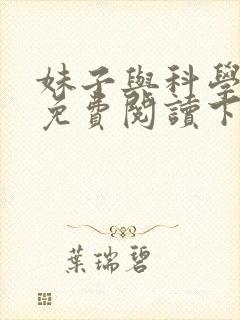 妹子與科學
免費閱讀下
葉瑞碧